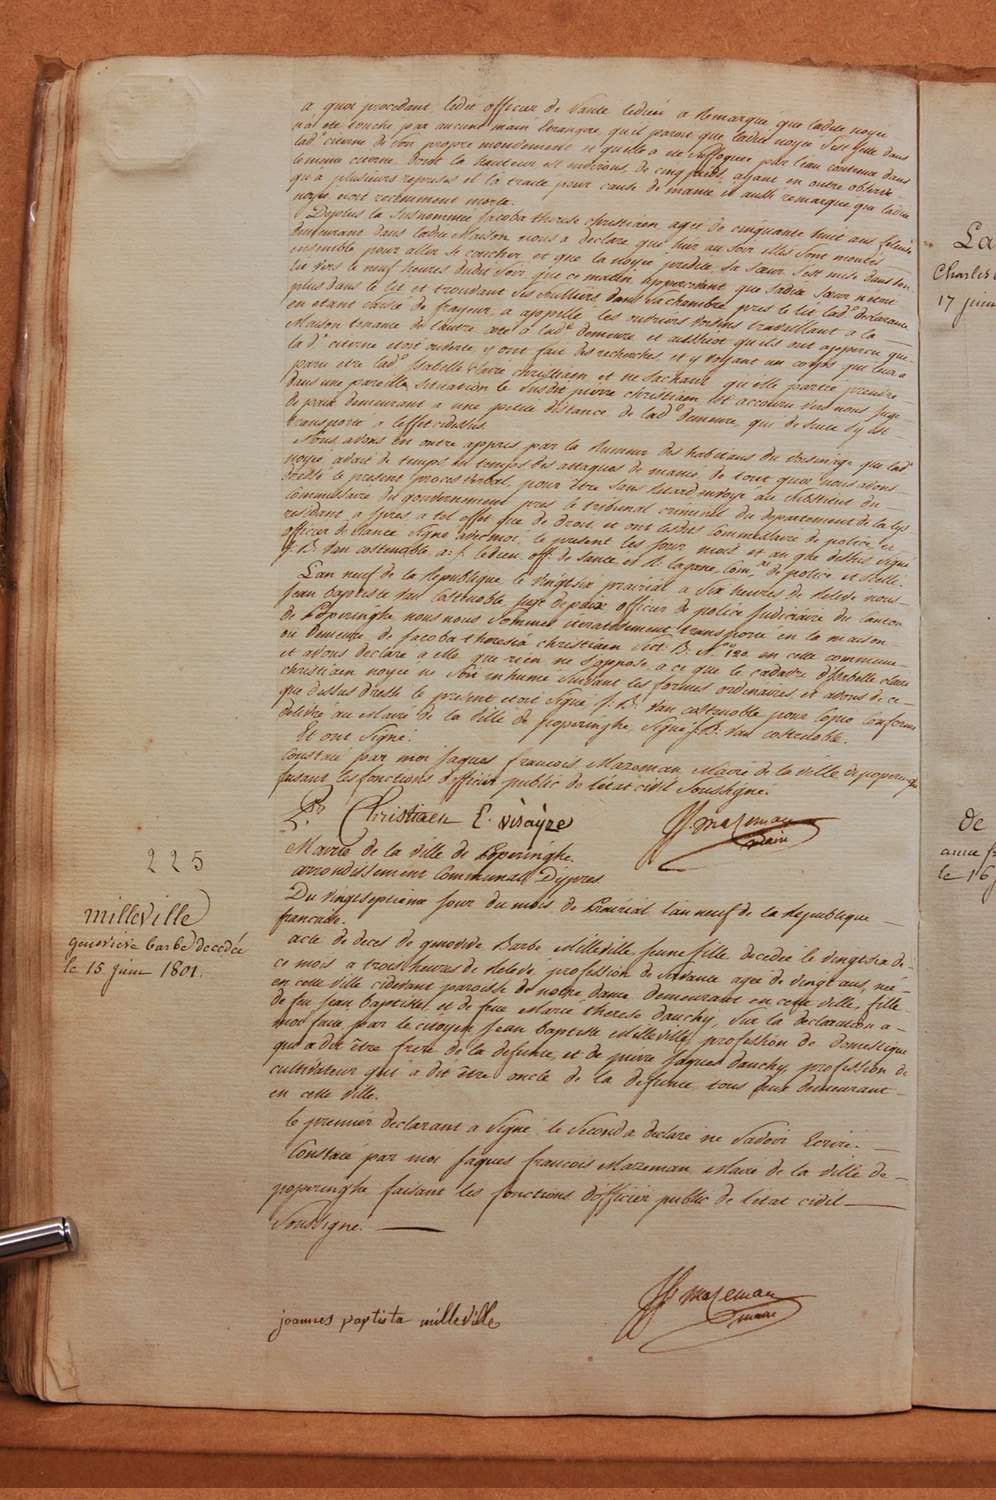 a quoi procedant ledit officier de Sante ledieu a Remarque que ladite noyée
na ete touché par aucune main etrangre, qu'il paroit que ladite noyée s'est jetté dans
lad.e citerne de son propre mouvement et quelle a ete suffoquée par l'eau contenue dans
le meme citerne dont la hauteur est environs de cinq pieds, ayant en outre observé
qu'a plusieurs reprises il l'a traité pour cause de manie et aussi remarque que ladite
noyée etoit recemment morte.
Deplus la Susnommée Jacoba therese christiaen agee de cinquante huit ans fileuse
demeurant dans ladite Maison nous a declare que hier au soir elles sont montés
ensemble pour aller se coucher et que la noyée predite sa Sœur s'est mise dans son
lit vers le neuf heures dudit soir que ce matin appercevant que sadite Sœur n'etoit
plus dans le lit et trouvant ses Sulliers dans sa chambre pres le lit lad.e declarante
en etant saisie de frayeur, a appelle les ouvriers voisins travaillant a la
Maison tenante de l'autre cote a lad.e demeure et aussitot qu'ils ont apperçu que
la d.e citerne etoit ouverte, y ont fait des recherches et y voyant un corps qui leur a
paru etre lad.e Isabelle Claire christiaen et ne sachant quelle partie prendre
dans une pareille situation le susdit pierre christiaen est accouru vers nous Juge
de paix demeurant a une petite distance de lad.e demeure, qui de suite s'y est
transporté a l'effet cidessus.
Nous avons en outre appris par la Rumeur des habitans du voisinage que lad.e
noyée avoit de temps en temps des attaques de manie de tout quoi nous avons
dressé le present proces verbal, pour être sans Retard envoye au substitut du
commissaire du gouvernement pres le tribunal criminel du departement de la lys
residant a ypres a tel effet que de droit et ont lesdits Commissaire de police et
officier de Sance signe avec moi, le present les Jour, mois et an que dessus signé
J. B. Van costenoble, a: f. ledieu off. de Sante, et R. lagane Com.re de police et scelle.
L'an neuf de la Republique le vingtsix prairial a six heures de Relevé nous
Jean baptiste Van Costenoble Juge de paix officier de police Judiciaire du Canton
de Poperinghe nous nous sommes iterativement transporté en la maison
ou demeure de Jacoba theresia christiaen Sect. B. N.o 120 en cette commune
et avons declare a elle que rien ne s'oppose a ce que le cadavre d'Isabelle claire
christiaen noyée ne soit inhumé suivant les formes ordinaires et avons de ce
que dessus dressé le present etoit signé J. B. Van costenoble pour Copie Conforme
delivré au Maire de la ville de poperinghe, signé J. B. Van costenoble.
Et ont Signé:
Constaté par moi Jaques francois Mazeman Maire de la ville de poperinghe
faisant les fonctions d'officier public de l'etat civil Soussigné.
Christiaen E. visayze JF. Mazeman
maire
Mairie de la ville de Poperinghe
arrondissement Communal D'ypres
225
Du vingtseptieme Jour du mois de Prairial l'an neuf de la Republique
francaise.
milleville
genevièvè barbe decedée
le 15 juin 1801.
acte de deces de genevieve Barbe Milleville, Jeune fille, decedée le vingtsix de
ce mois a trois heures de Relevé, profession de Servante agee de vingt ans, née
en cette ville cidevant paroisse de notre dame demeurant en cette ville, fille
de feu Jean Baptiste, et de feue Marie therese dauchy, Sur la declaration a
moi faite par le citoyen Jean baptiste Milleville, profession de domestique
qui a dit être frere de la defunte, et de pierre Jaques dauchy, profession de
cultivateur qui a dit être oncle de la defunte, tous deux demeurant
en cette ville.
le premier declarant a Signé, le Second a declaré ne savoir Ecrire.
Constaté par moi Jaques francois Mazeman Maire de la ville de
poperinghe faisant les fonctions d'officier public de l'etat civil
Soussigné.
JF. Mazeman
maire
joannes baptista milleville
La
Charles
17 juin
de
anne f
le 16 j